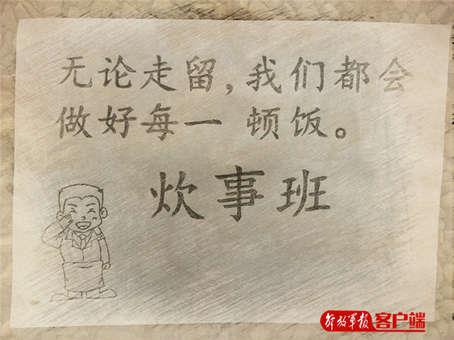 无论走留,我们都会
做好每一顿饭。
炊事班
解放军报 客户端